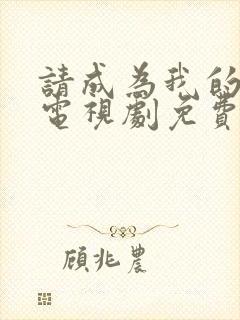 請成為我的
電視劇免費
顧兆農